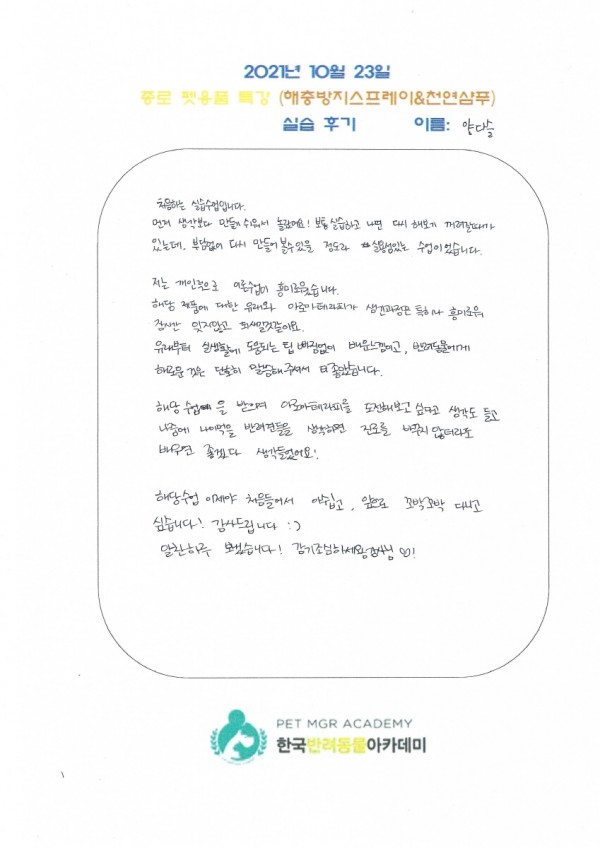 2021년 10월 23일
종로 펫용품 특강 (해충방지스프레이&천연샴푸)
실습 후기 이름: 양다슬
처음하는 실습수업입니다.
먼저 생각보다 만들기 쉬워서 놀랐어요! 보통 실습하고 나면 다시 해보기 꺼려질때가
있는데, 부담없이 다시 만들어 볼수있을 정도라 실용성있는 수업이었습니다.
저는 개인적으로 이론수업이 흥미로웠습니다.
해당 제품에 대한 유래와 아로마테라피가 생긴과정은 특히나 흥미로워
장시간 잊지않고 되새길것같아요.
유래부터 실생활에 도움되는 팁 빠짐없이 배운느낌이고, 반려동물에게
해로운 것은 단호히 말씀해주셔서 더 좋았습니다.
해당 수업을 받으며 아로마테라피를 도전해보고 싶다고 생각도 들고
나중에 나이먹을 반려견들을 생각하면 진로를 바꾸지 않더라도
배우면 좋겠다 생각들었어요!
해당수업 이제야 처음들어서 아쉽고, 앞으로 꼬박꼬박 다니고
싶습니다! 감사드립니다 :)
알찬하루 보냈습니다! 감기조심하세요, 강사님 ♡!
PET MGR ACADEMY
한국반려동물아카데미